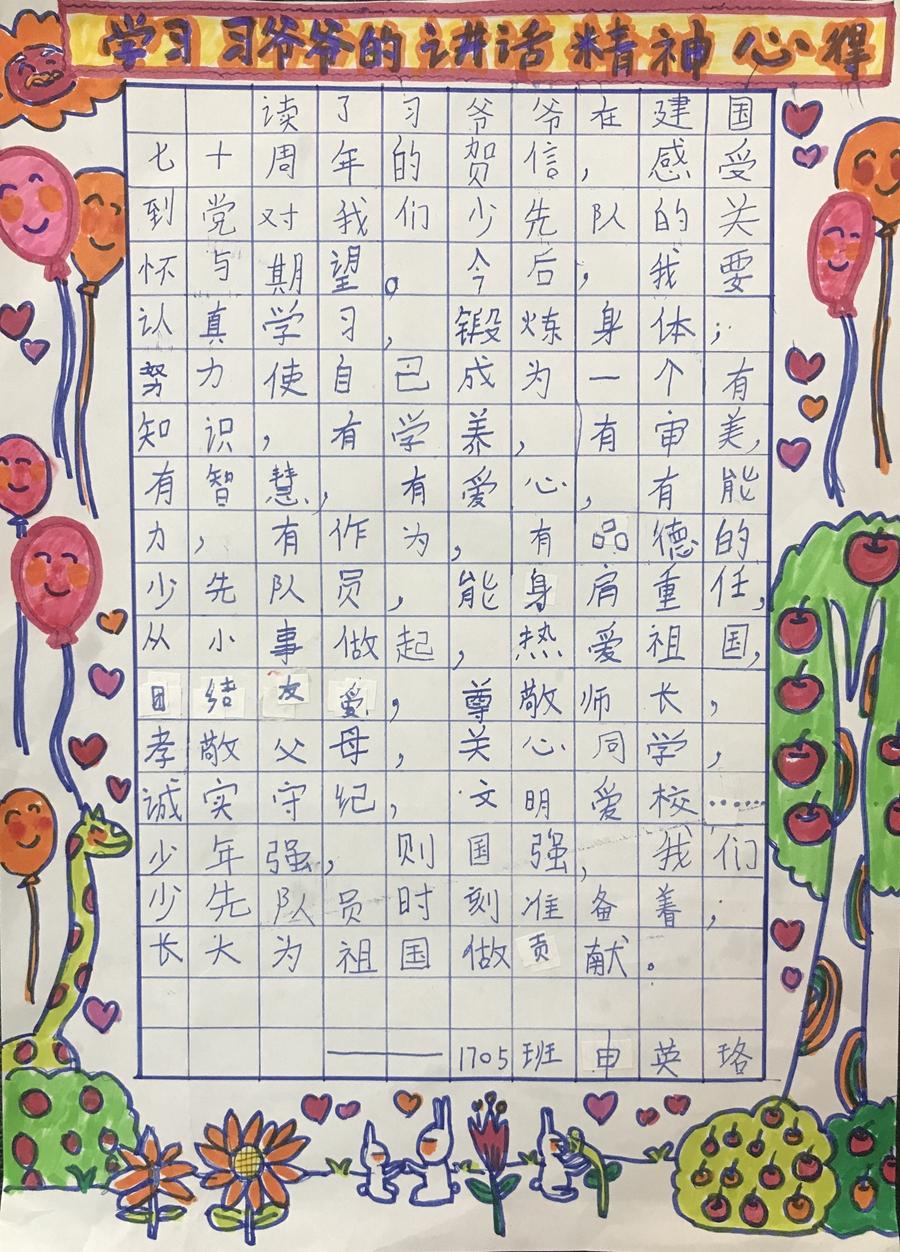 学习习爷爷的讲话精神心得
读了习爷爷在建国
七十周年的贺信，感受
到党对我们少先队的关
怀与期望。今后，我要
认真学习，锻炼身体；
努力使自己成为一个有
知识，有学养，有审美，
有智慧，有爱心，有能
力，有作为，有品德的
少先队员，能身肩重任，
从小事做起，热爱祖国，
团结友爱，尊敬师长，
孝敬父母，关心同学，
诚实守纪，文明爱校……
少年强，则国强，我们
少先队员时刻准备着；
长大为祖国做贡献。
——1705班申英珞